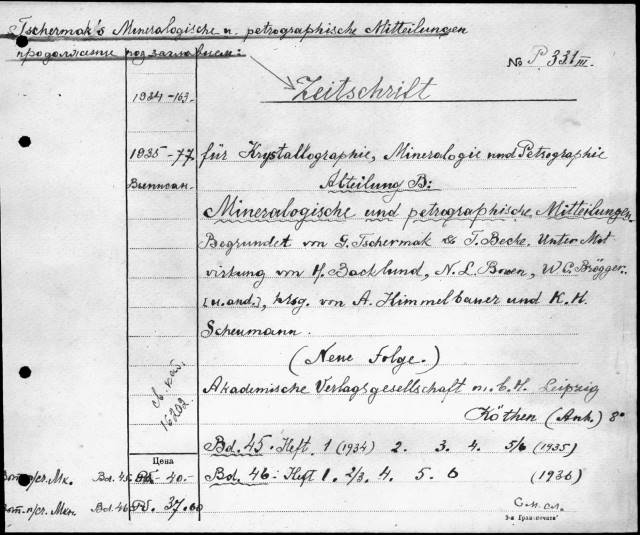 Tschermak's Mineralogische u. petrographische Mitteilungen
продолжение под заглавием:
№ P.331 III.
Zeitschrift
1934-163.
1935-77 für Krystallographie, Mineralogie und Petrographie
Выписан. Abteilung B:
Mineralogische und petrographische Mitteilungen.
Begrundet von G. Tschermak & F. Becke. Unter Mit
virkung von H. Backlund, N. L. Bowen, W. C. Brögger.
[u. and.], hrsg. von A. Himmelbauer und K. H.
Scheumann.
(Neue Folge.)
св. кат.
16202.
Akademische Verlagsgesellschaft m. b. H. Leipzig
Köthen (Anh.) 8°
Bd. 45. Heft 1 (1934) 2. 3. 4. 5/6 (1935)
Цена
Bd. 45 40.-
Bd. 46: Heft 1. 2/3. 4. 5. 6 (1936)
Bd. 46 37.60
См. сл.